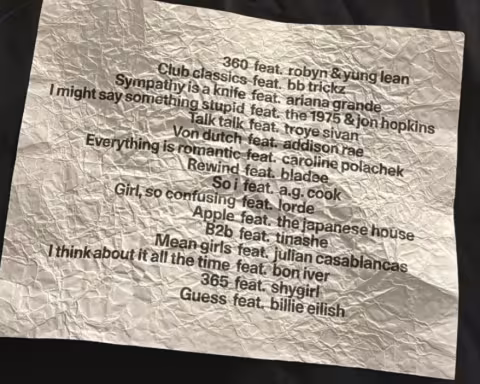 360 feat. robyn & yung lean
Club classics feat. bb trickz
Sympathy is a knife feat. ariana grande
I might say something stupid feat. the 1975 & jon hopkins
Talk talk feat. troye sivan
Von dutch feat. addison rae
Everything is romantic feat. caroline polachek
Rewind feat. bladee
So i feat. a.g. cook
Girl, so confusing feat. lorde
Apple feat. the japanese house
B2b feat. tinashe
Mean girls feat. julian casablancas
I think about it all the time feat. bon iver
365 feat. shygirl
Guess feat. billie eilish